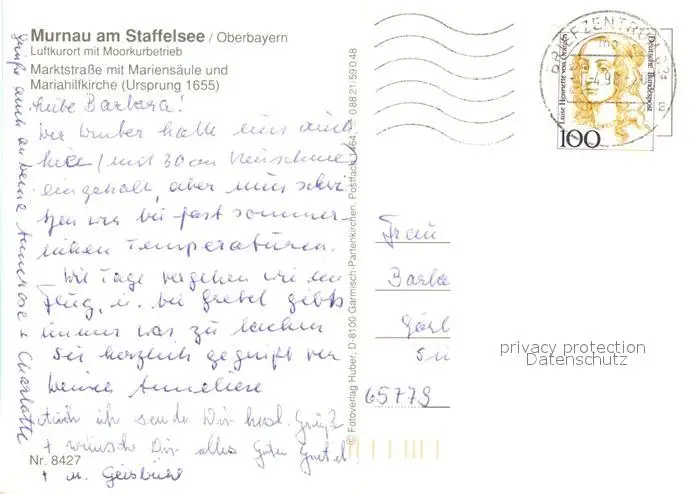 Murnau am Staffelsee / Oberbayern
Luftkurort mit Moorkurbetrieb
Marktstraße mit Mariensäule und
Mariahilfkirche (Ursprung 1655)
Liebe Barbara!
Der Winter hatte uns auch
hier (mit 30 cm Neuschnee)
eingeholt, aber nun schwi-
tzen wir bei fast sommer-
lichen Temperaturen.
Die Tage vergehen wie im
Flug, u. bei Gretel gibts
immer was zu lachen
Sei herzlich gegrüßt von
Deiner Anneliese
Auch ich sende Dir herzl. Grüße
+ wünsche Dir alles Gute Gretel
+ M. Geisbühl
Grüße auch an Deine Annerose + Charlotte
Nr. 8427
© Fotoverlag Huber, D-8100 Garmisch-Partenkirchen, Postfach 1464, 0 88 21-5 90 48
BRIEFZENTRUM 82
Luise Henriette von Oranien
Deutsche Bundespost
100
Frau
Barba
65779
privacy protection
Datenschutz